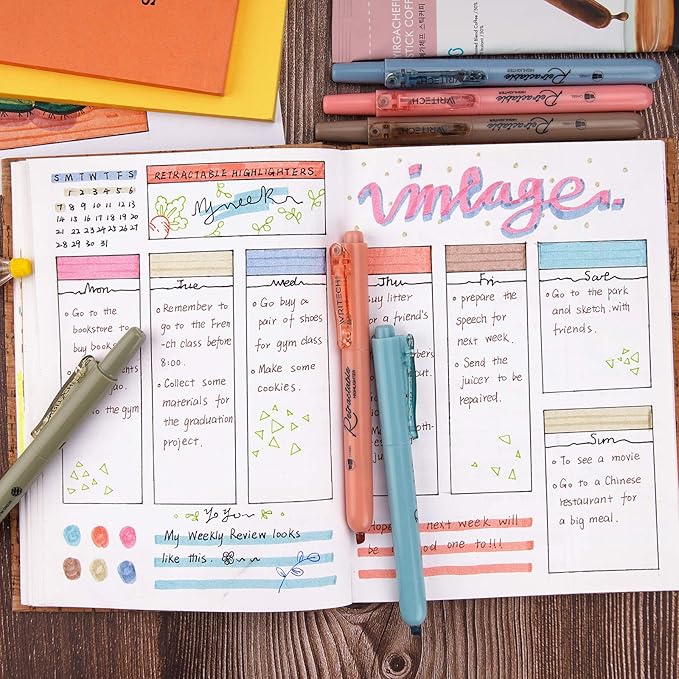 YIRGACHEFFE
STICK COFFEE
WRITECH Retractable HIGHLIGHTER
WRITECH Retractable HIGHLIGHTER
WRITECH Retractable HIGHLIGHTER
S M T W T F S
1 2 3 4 5 6
7 8 9 10 11 12 13
14 15 16 17 18 19 20
21 22 23 24 25 26 27
28 29 30 31
RETRACTABLE HIGHLIGHTERS
My week
vintage
Mon
Go to the
bookstore to
buy book
the gym
Tue
Remember to
go to the Fren
-ch class before
8:00.
Collect some
materials for
the graduation
project.
Wed
Go buy a
pair of shoes
for gym class
Make some
cookies.
Thu
Buy litter
for a friend's
Fri
prepare the
speech for
next week.
Send the
juicer to be
repaired.
Sat
Go to the park
and sketch with
friends.
Sun
To see a movie
Go to a Chinese
restaurant for
a big meal.
WRITECH
Retractable
HIGHLIGHTER
Yo You
My Weekly Review looks
like this.
Hope next week will
be good one to!!!